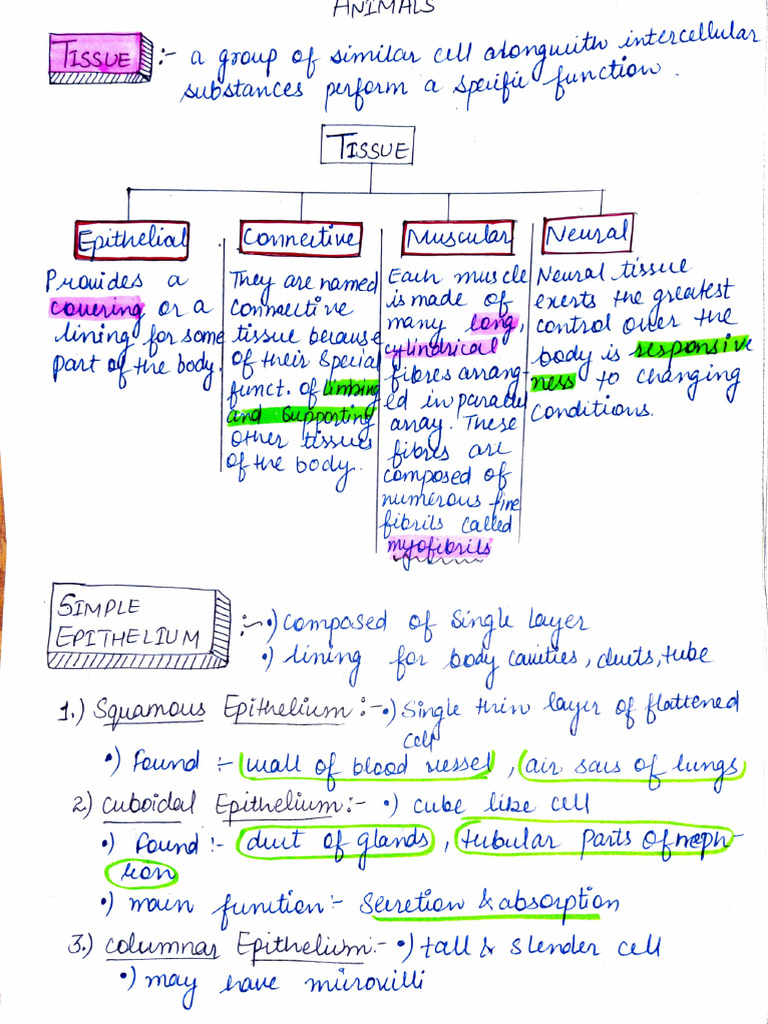 ANIMALS
TISSUE :- a group of similar cell alongwith intercellular
substances perform a specific function.
TISSUE
Epithelial
Provides a
covering or a
lining for some
part of the body.
Connective
They are named
connective
tissue because
of their special
funct. of limbing
and supporting
other tissues
of the body.
Muscular
Each muscle
is made of
many long,
cylindrical
fibres arrang-
ed in parallel
array. These
fibres are
composed of
numerous fine
fibrils called
myofibrils
Neural
Neural tissue
exerts the greatest
control over the
body is responsive
ness to changing
conditions.
SIMPLE
EPITHELIUM
:- •) composed of single layer
•) lining for body cavities, ducts, tube
1.) Squamous Epithelium :- •) Single thin layer of flattened
cell
•) Found :- wall of blood vessel, air sacs of lungs
2) cuboidal Epithelium :- •) cube like cell
•) Found :- duct of glands, tubular parts of neph-
ron
•) main function :- secretion & absorption
3.) columnar Epithelium :- •) tall & slender cell
•) may have microvilli